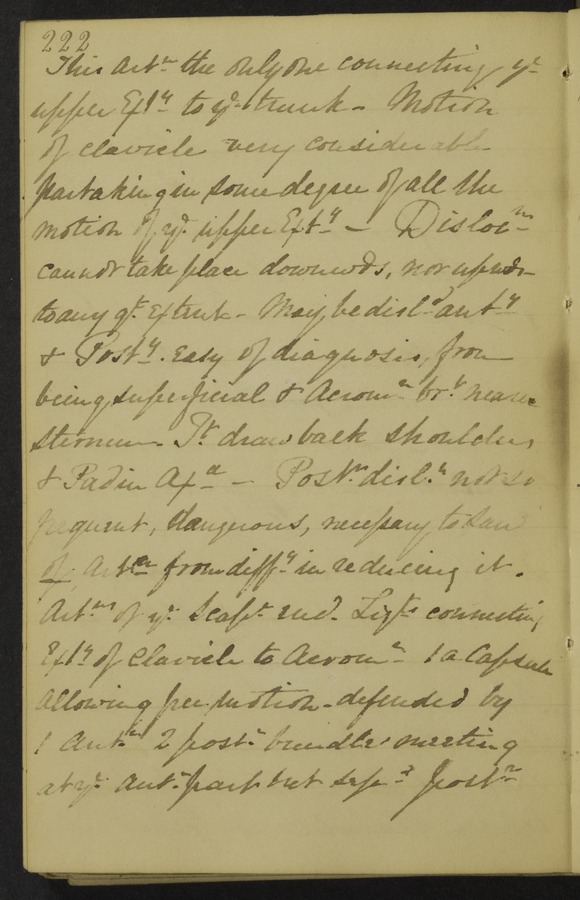 222
This Artn the only one connecting ye
upper Exty to ye trunk - Motion
of clavicle very considerable
partaking in some degree of all the
motion of ye upper Exty - Dislocn
cannot take place downwds, nor upwds
to any gt extent - May be disld anty
& Posty. Easy of diagnosis, from
being superficial & Acromn brt nearer
sternum - Tt draw back shoulders
& Pad in Axa - Postr disln not so
frequent, dangerous, necessary to saw
off Artn from diffy in reducing it.
Artns of ye Scapr end. Ligts connecting
Exty of clavicle to Acromn - 1 a Capsule
allowing free motion - defended by
1 Antr 2 postr bundles meeting
at ye antr part but sepd postr